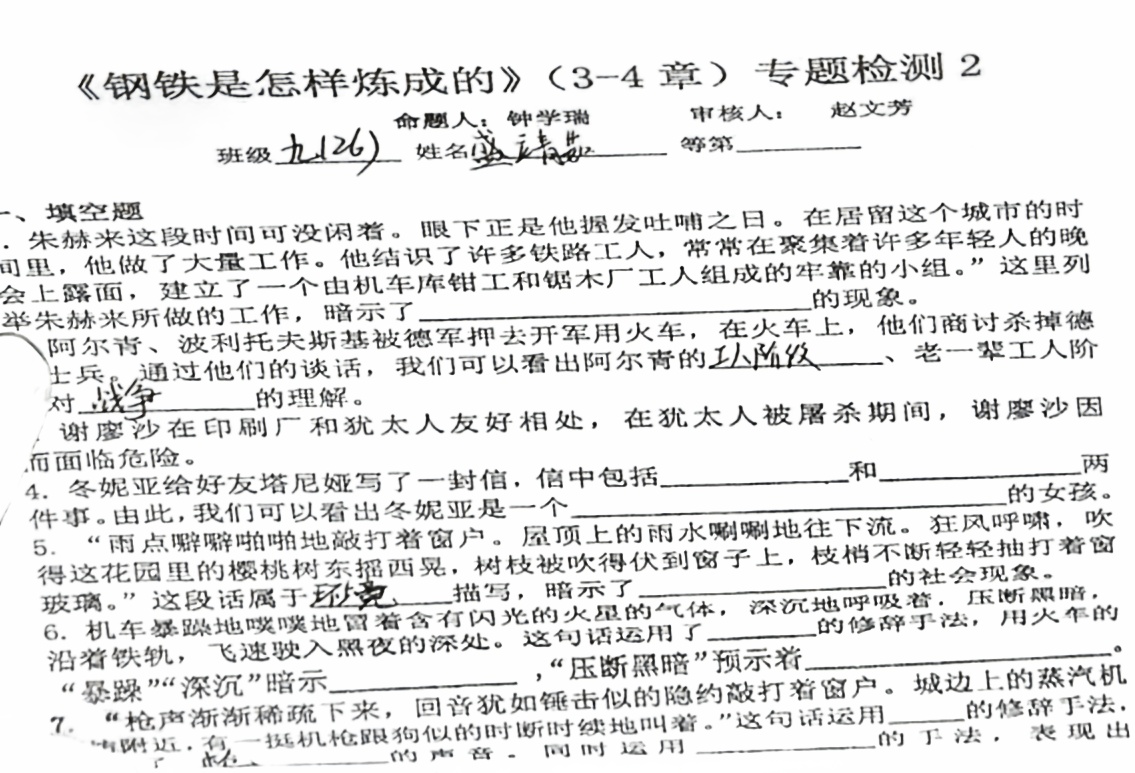 《钢铁是怎样炼成的》（3-4 章）专题检测 2
命题人：钟学瑞 审核人： 赵文芳
班级九(26) 姓名盛 等第
一、填空题
. 朱赫来这段时间可没闲着。眼下正是他握发吐哺之日。在居留这个城市的时
间里，他做了大量工作。他结识了许多铁路工人，常常在聚集着许多年轻人的晚
会上露面，建立了一个由机车库钳工和锯木厂工人组成的牢靠的小组。”这里列
举朱赫来所做的工作，暗示了____的现象。
阿尔青、波利托夫斯基被德军押去开军用火车，在火车上，他们商讨杀掉德
士兵。通过他们的谈话，我们可以看出阿尔青的工人阶级____、老一辈工人阶
对 战争____的理解。
. 谢廖沙在印刷厂和犹太人友好相处，在犹太人被屠杀期间，谢廖沙因
而面临危险。
4. 冬妮亚给好友塔尼娅写了一封信，信中包括____和____两
件事。由此，我们可以看出冬妮亚是一个____的女孩。
5. “雨点噼噼啪啪地敲打着窗户。屋顶上的雨水唰唰地往下流。狂风呼啸，吹
得这花园里的樱桃树东摇西晃，树枝被吹得伏到窗子上，枝梢不断轻轻抽打着窗
玻璃。”这段话属于环境____描写，暗示了____的社会现象。
6. 机车暴躁地噗噗地冒着含有闪光的火星的气体，深沉地呼吸着，压断黑暗，
沿着铁轨，飞速驶入黑夜的深处。这句话运用了____的修辞手法，用火车的
“暴躁”“深沉”暗示____，“压断黑暗”预示着____。
7. “枪声渐渐稀疏下来，回音犹如锤击似的隐约敲打着窗户。城边上的蒸汽机
附近，有一挺机枪跟狗似的时断时续地叫着。”这句话运用____的修辞手法，
____的声音。同时运用____的手法，表现出